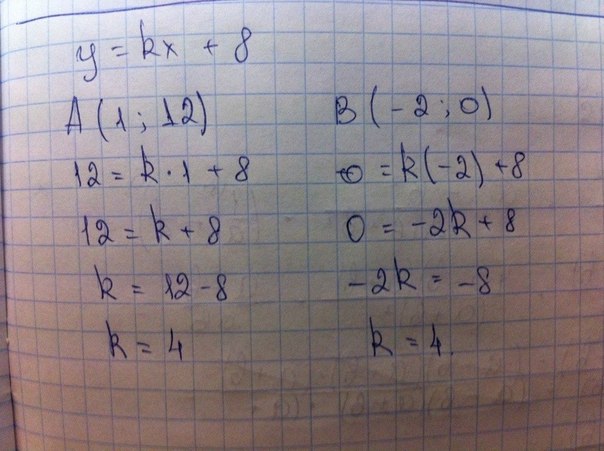 y = kx + 8
A (1 ; 12)
12 = k · 1 + 8
12 = k + 8
k = 12 - 8
k = 4
B (-2 ; 0)
0 = k(-2) + 8
0 = -2k + 8
-2k = -8
k = 4.